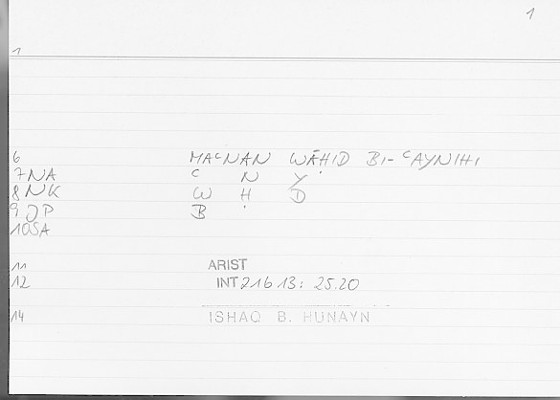 1
1
6 MAᶜNAN WĀḤID BI-ᶜAYNIHI
7 NA C N Y
8 NK W Ḥ D
9 JP B
10 SA
11 ARIST
12 INT 216 13: 25.20
14 ISHAQ B. HUNAYN